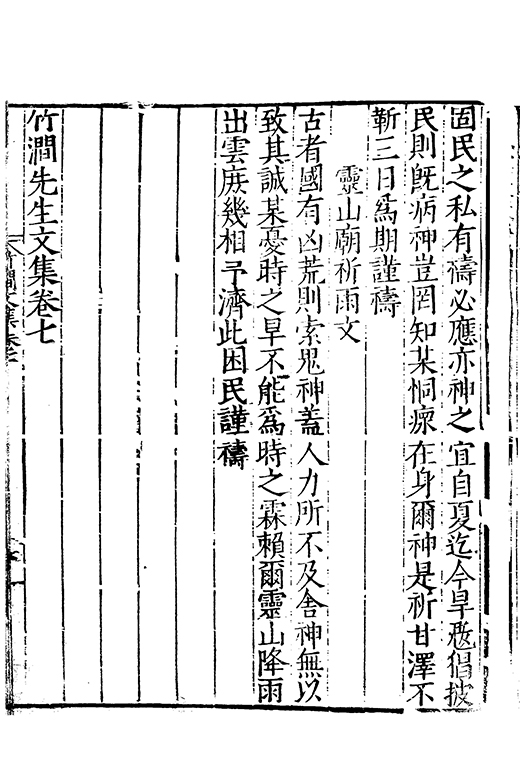 固民之私有禱必應亦神之宜自夏迄今旱魃猖披
民則旣病神豈罔知某恫瘝在身爾神是祈甘澤不
靳三日爲期謹禱
靈山廟祈雨文
古者國有凶荒則索鬼神蓋人力所不及舍神無以
致其誠某憂時之旱不能爲時之霖賴爾靈山降雨
出雲庻幾相予濟此困民謹禱
竹澗先生文集卷七